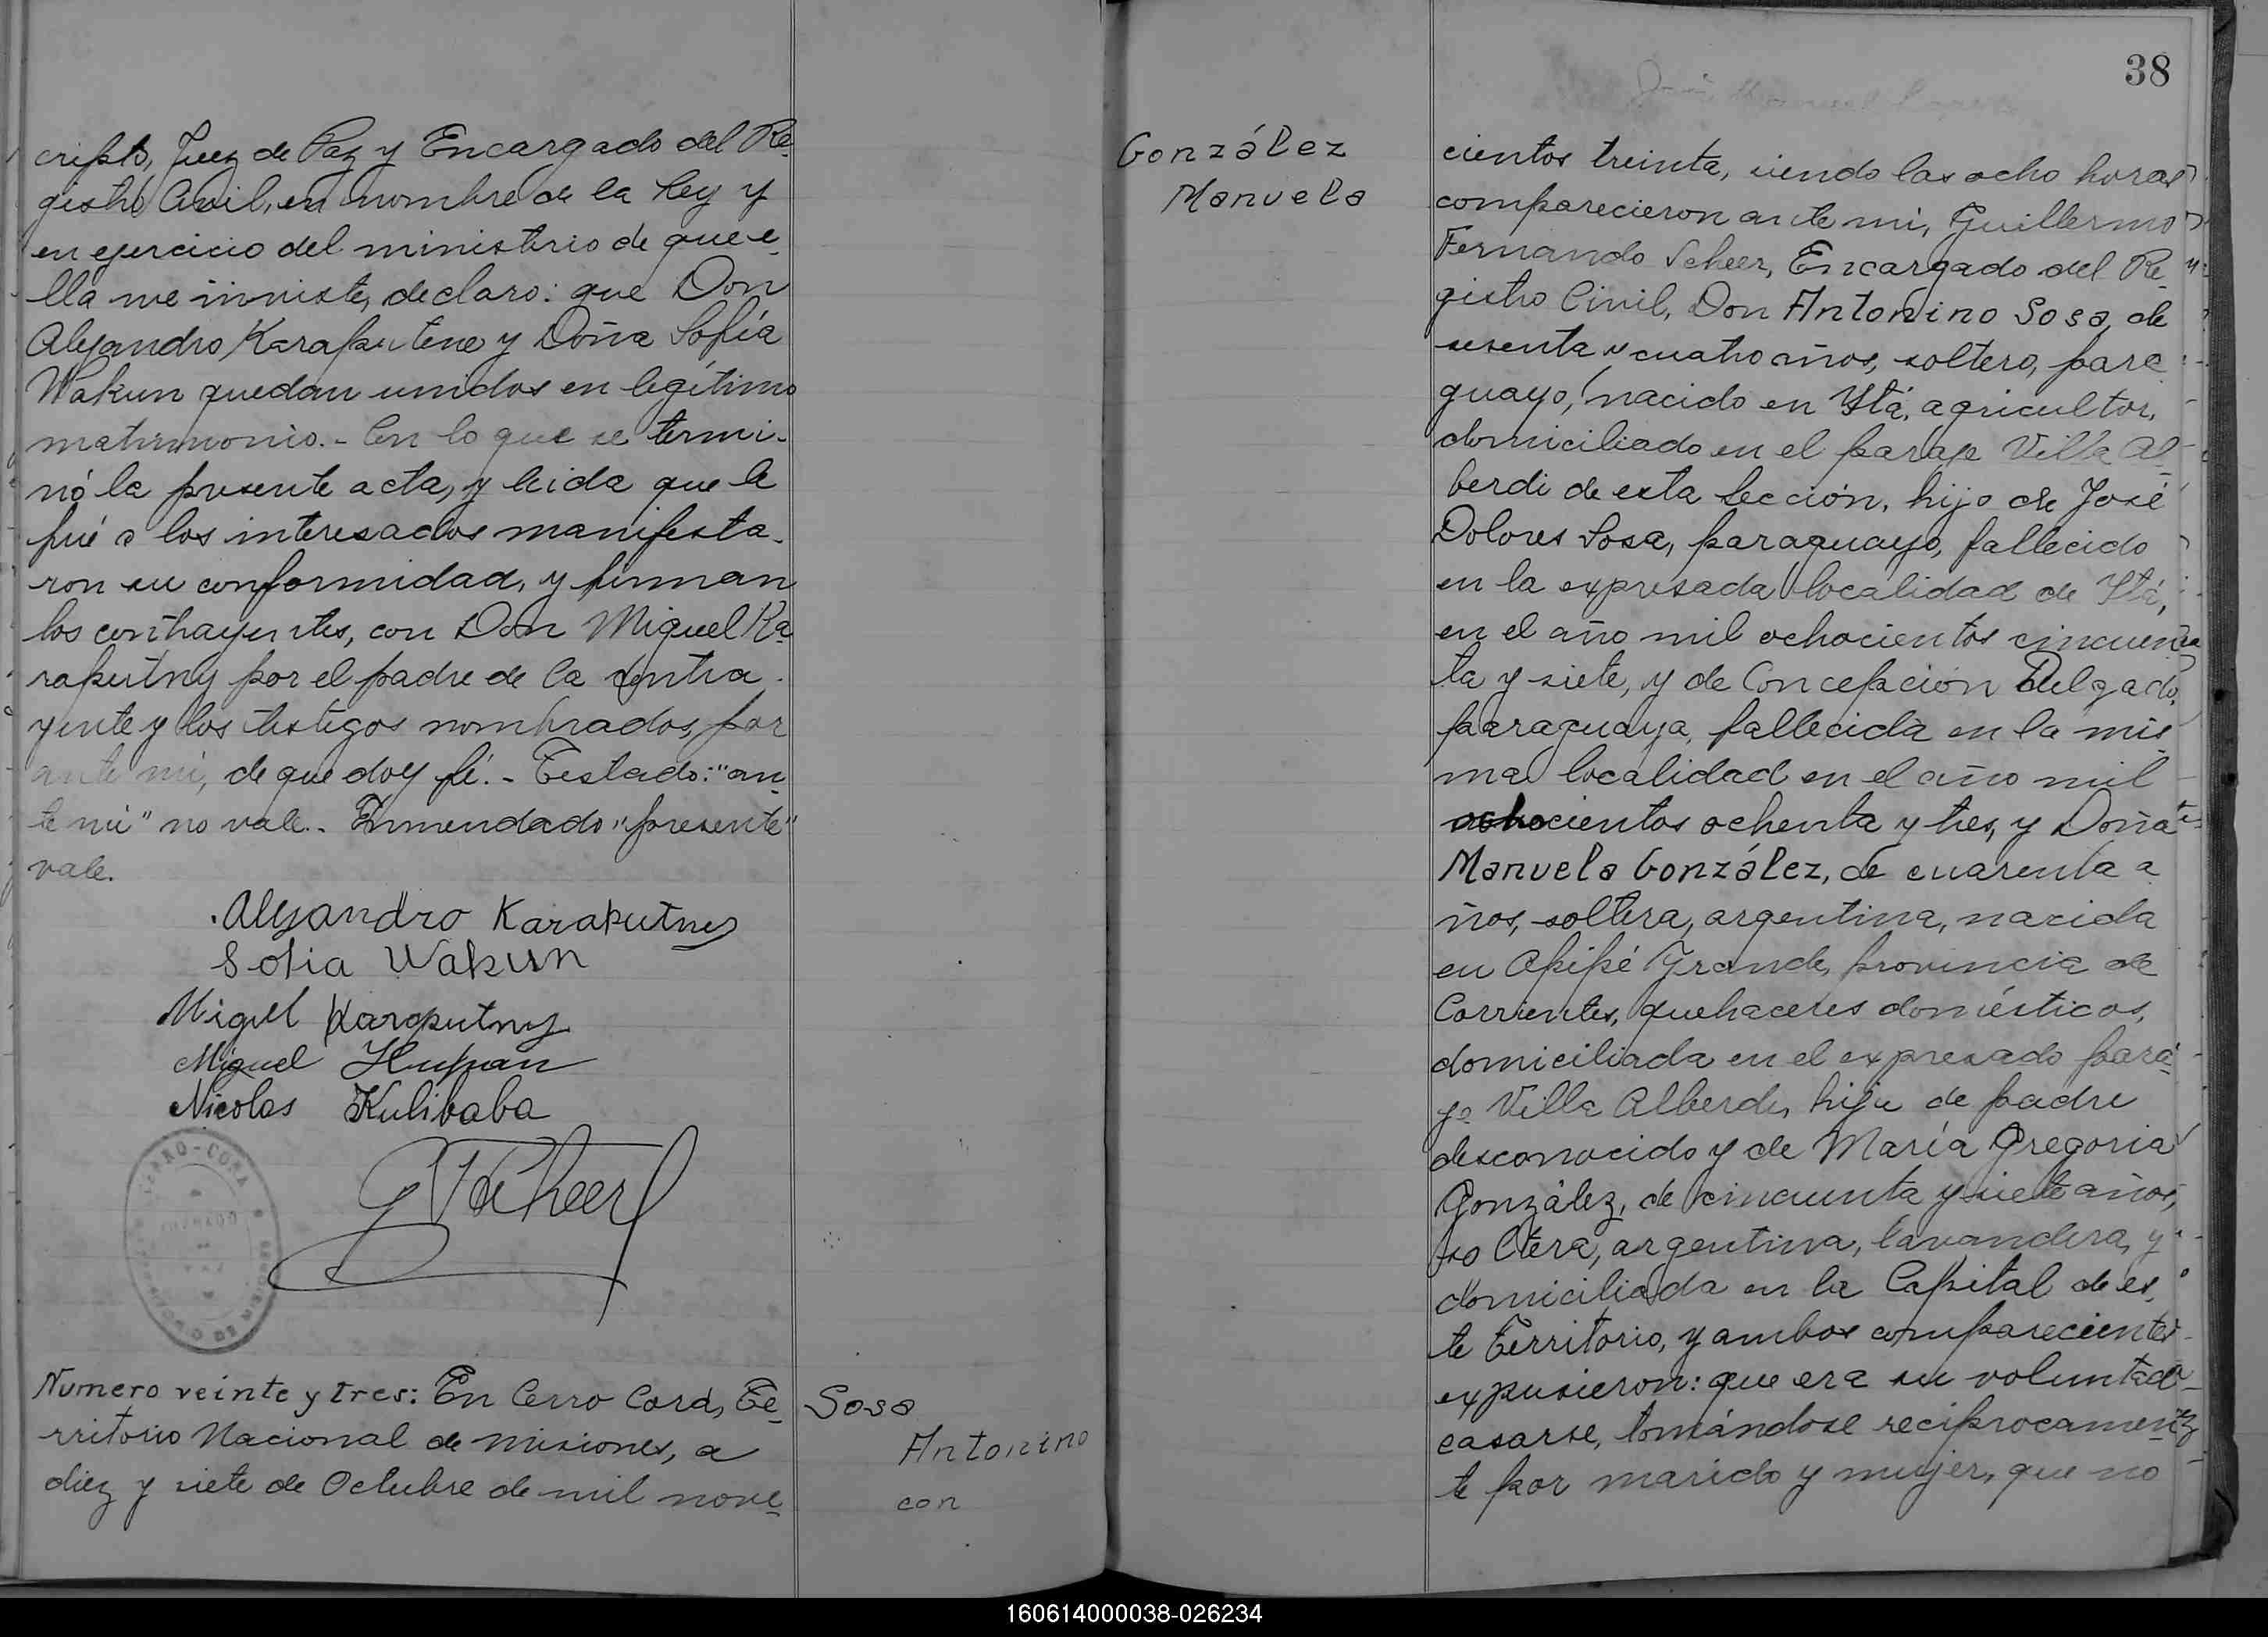 cripto, Juez de Paz y Encargado del Re-
gistro Civil, en nombre de la Ley y
en ejercicio del ministerio de que e-
lla me inviste, declaro: que Don
Alejandro Karaputene y Doña Sofía
Wakun quedan unidos en legítimo
matrimonio.- Con lo que se termi-
nó la presente acta, y leida que le
fué a los interesados manifesta-
ron su conformidad, y firman
los contrayentes, con Don Miguel Ka-
raputny por el padre de la contra-
yente y los testigos nombrados, por
ante mi, de que doy fé.- Testado: "an-
te mi" no vale.- Enmendado "presente"
vale.
Alejandro Karaputny
Sofia Wakun
Miguel Karaputny
Miguel Hupan
Nicolas Kulibaba
G F Scheer
CERRO-CORA
Numero veinte y tres: En Cerro Corá, Te-
rritorio Nacional de Misiones, a
diez y siete de Octubre de mil nove-
Sosa
Antonino
con
38
González
Manuela
cientos treinta, siendo las ocho horas
comparecieron ante mi, Guillermo
Fernando Scheer, Encargado del Re-
gistro Civil, Don Antonino Sosa, de
sesenta y cuatro años, soltero, para
guayo, nacido en Ytá, agricultor,
domiciliado en el paraje Villa Al-
berdi de esta Sección, hijo de José
Dolores Sosa, paraguayo, fallecido
en la expresada localidad de Ytá,
en el año mil ochocientos cincuen
ta y siete, y de Concepción Delgado,
paraguaya, fallecida en la mis-
ma localidad en el año mil
ochocientos ochenta y tres, y Doña
Manuela González, de cuarenta a
ños, soltera, argentina, nacida
en Apipé Grande, provincia de
Corrientes, quehaceres domésticos,
domiciliada en el expresado para-
je Villa Alberdi, hija de padre
desconocido y de María Gregoria
González, de cincuenta y siete años,
soltera, argentina, lavandera, y
domiciliada en la Capital de es-
te Territorio, y ambos comparecientes
expusieron: que era su voluntad
casarse, tomándose recíprocamen-
te por marido y mujer, que no
160614000038-026234